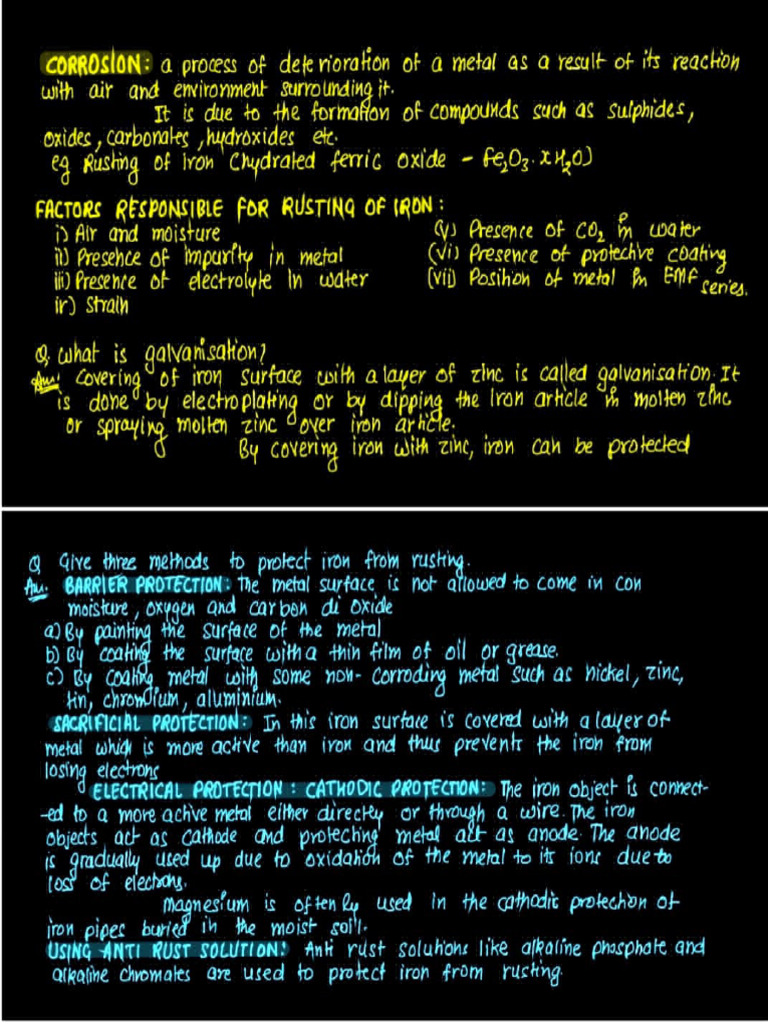 CORROSION: a process of deterioration of a metal as a result of its reaction
with air and environment surrounding it.
It is due to the formation of compounds such as sulphides,
oxides, carbonates, hydroxides etc.
eg Rusting of iron (hydrated ferric oxide - Fe₂O₃.xH₂O)
FACTORS RESPONSIBLE FOR RUSTING OF IRON:
i) Air and moisture
ii) Presence of impurity in metal
iii) Presence of electrolyte in water
iv) Strain
(v) Presence of CO₂ in water
(vi) Presence of protective coating
(vii) Position of metal in EMF series.
Q. What is galvanisation?
Ans: Covering of iron surface with a layer of zinc is called galvanisation. It
is done by electroplating or by dipping the iron article in molten zinc
or spraying molten zinc over iron article.
By covering iron with zinc, iron can be protected
Q Give three methods to protect iron from rusting.
Ans. BARRIER PROTECTION: The metal surface is not allowed to come in con
moisture, oxygen and carbon di oxide
a) By painting the surface of the metal
b) By coating the surface with a thin film of oil or grease.
c) By coating metal with some non-corroding metal such as nickel, zinc,
tin, chromium, aluminium.
SACRIFICIAL PROTECTION: In this iron surface is covered with a layer of
metal which is more active than iron and thus prevents the iron from
losing electrons
ELECTRICAL PROTECTION: CATHODIC PROTECTION: The iron object is connect-
-ed to a more active metal either directly or through a wire. The iron
objects act as cathode and protecting metal act as anode. The anode
is gradually used up due to oxidation of the metal to its ions due to
loss of electrons.
Magnesium is often ly used in the cathodic protection of
iron pipes buried in the moist soil.
USING ANTI RUST SOLUTION: Anti rust solutions like alkaline phosphate and
alkaline chromates are used to protect iron from rusting.